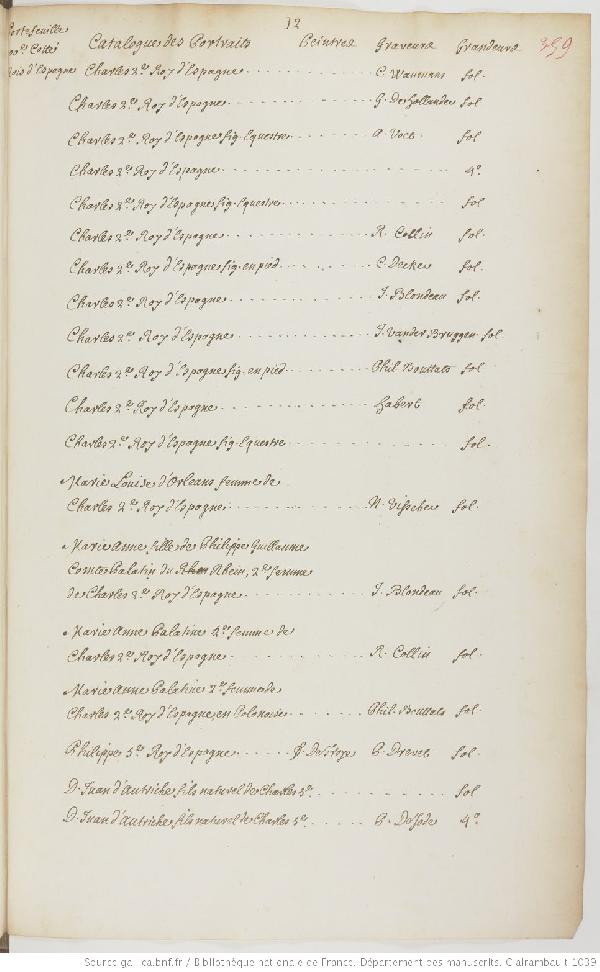 12
Portefeuille Catalogue des Portraits Peintres Graveurs Grandeurs 359
Rois d'Espagne Charles 2.e Roy d'Espagne C. Waumans fol.
Charles 2.e Roy d'Espagne G. De Hollander fol
Charles 2.e Roy d'Espagne fig. Equestre A. Voet fol
Charles 2.e Roy d'Espagne 4.o
Charles 2.e Roy d'Espagne fig. Equestre fol
Charles 2.e Roy d'Espagne R. Collin fol.
Charles 2.e Roy d'Espagne fig. en pied C. Decker fol.
Charles 2.e Roy d'Espagne J. Blondeau fol.
Charles 2.e Roy d'Espagne J. Vander Bruggen fol.
Charles 2.e Roy d'Espagne fig. en pied Phil. Bouttats fol
Charles 2.e Roy d'Espagne Habert fol.
Charles 2.e Roy d'Espagne fig. Equestre fol.
Marie Louise d'Orleans femme de
Charles 2.e Roy d'Espagne N. Visscher fol.
Marie Anne fille de Philippe Guillaume
Comte Palatin du Rhein, 2.e femme
de Charles 2.e Roy d'Espagne J. Blondeau fol.
Marie Anne Palatine 2.e femme de
Charles 2.e Roy d'Espagne R. Collin fol.
Marie Anne Palatine 2.e femme de
Charles 2.e Roy d'Espagne en Polonoise Phil. Bouttats fol.
Philippe 5.e Roy d'Espagne De Troye P. Drevet fol.
D. Juan d'Autriche fils naturel de Charles 5.e fol
D. Juan d'Autriche fils naturel de Charles 5.e P. De Jode 4.o
Source gallica.bnf.fr / Bibliothèque nationale de France. Département des manuscrits. Clairambault 1039